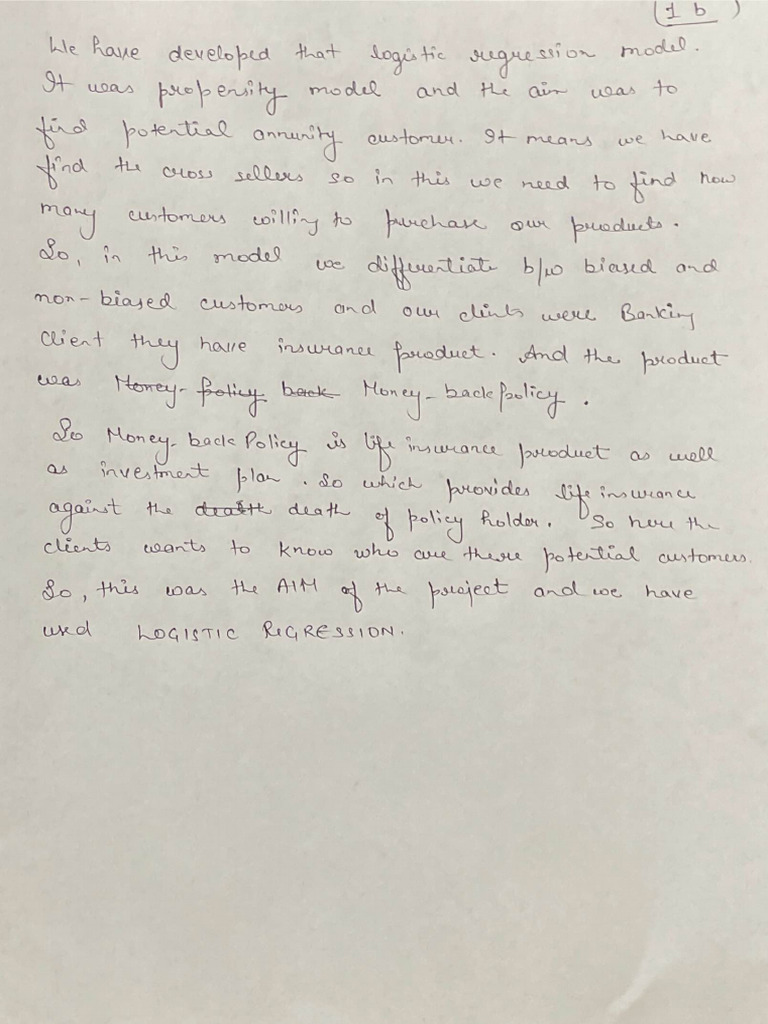 (1 b)
We have developed that logistic regression model.
It was propensity model and the aim was to
find potential annunity customer. It means we have
find the cross sellers so in this we need to find how
many customers willing to purchase our products.
So, in this model we differentiate b/w biased and
non-biased customers and our clients were Banking
client they have insurance product. And the product
was Money-policy back Money-back policy.
So Money-back Policy is life insurance product as well
as investment plan. So which provides life insurance
against the death death of policy holder. So here the
clients wants to know who are there potential customers.
So, this was the AIM of the project and we have
used LOGISTIC REGRESSION.